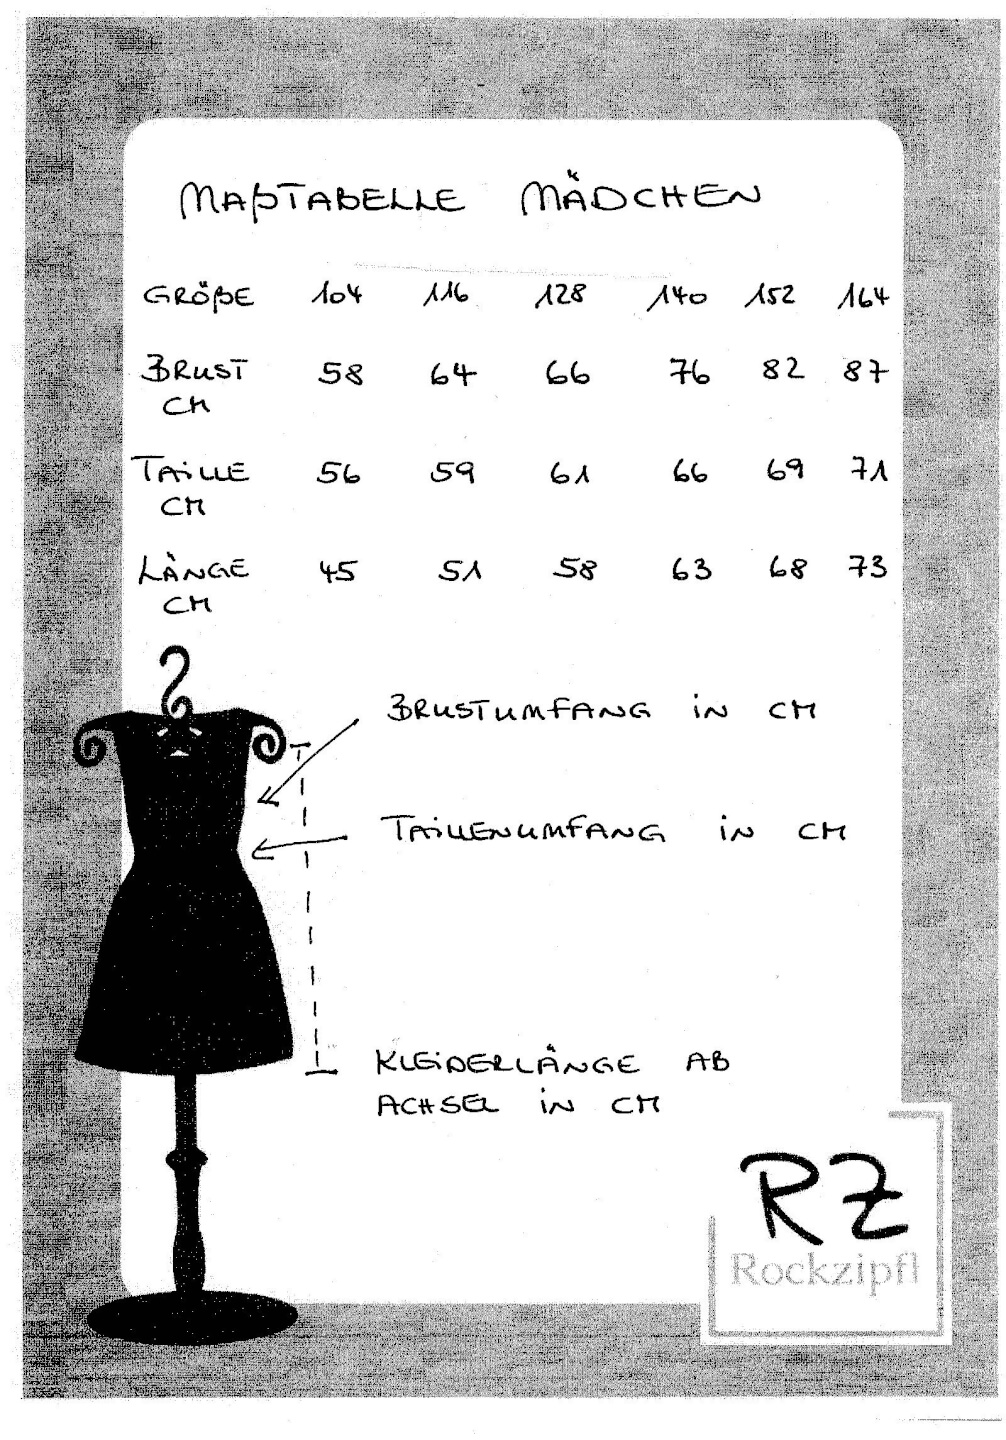 MAßTABELLE MÄDCHEN
GRÖßE 104 116 128 140 152 164
BRUST 58 64 66 76 82 87
CM
TAiLLE 56 59 61 66 69 71
CM
LÄNGE 45 51 58 63 68 73
CM
BRUSTUMFANG iN CM
TAiLLENUMFANG iN CM
KLEiDERLÄNGE AB
ACHSEL iN CM
RZ
Rockzipfl